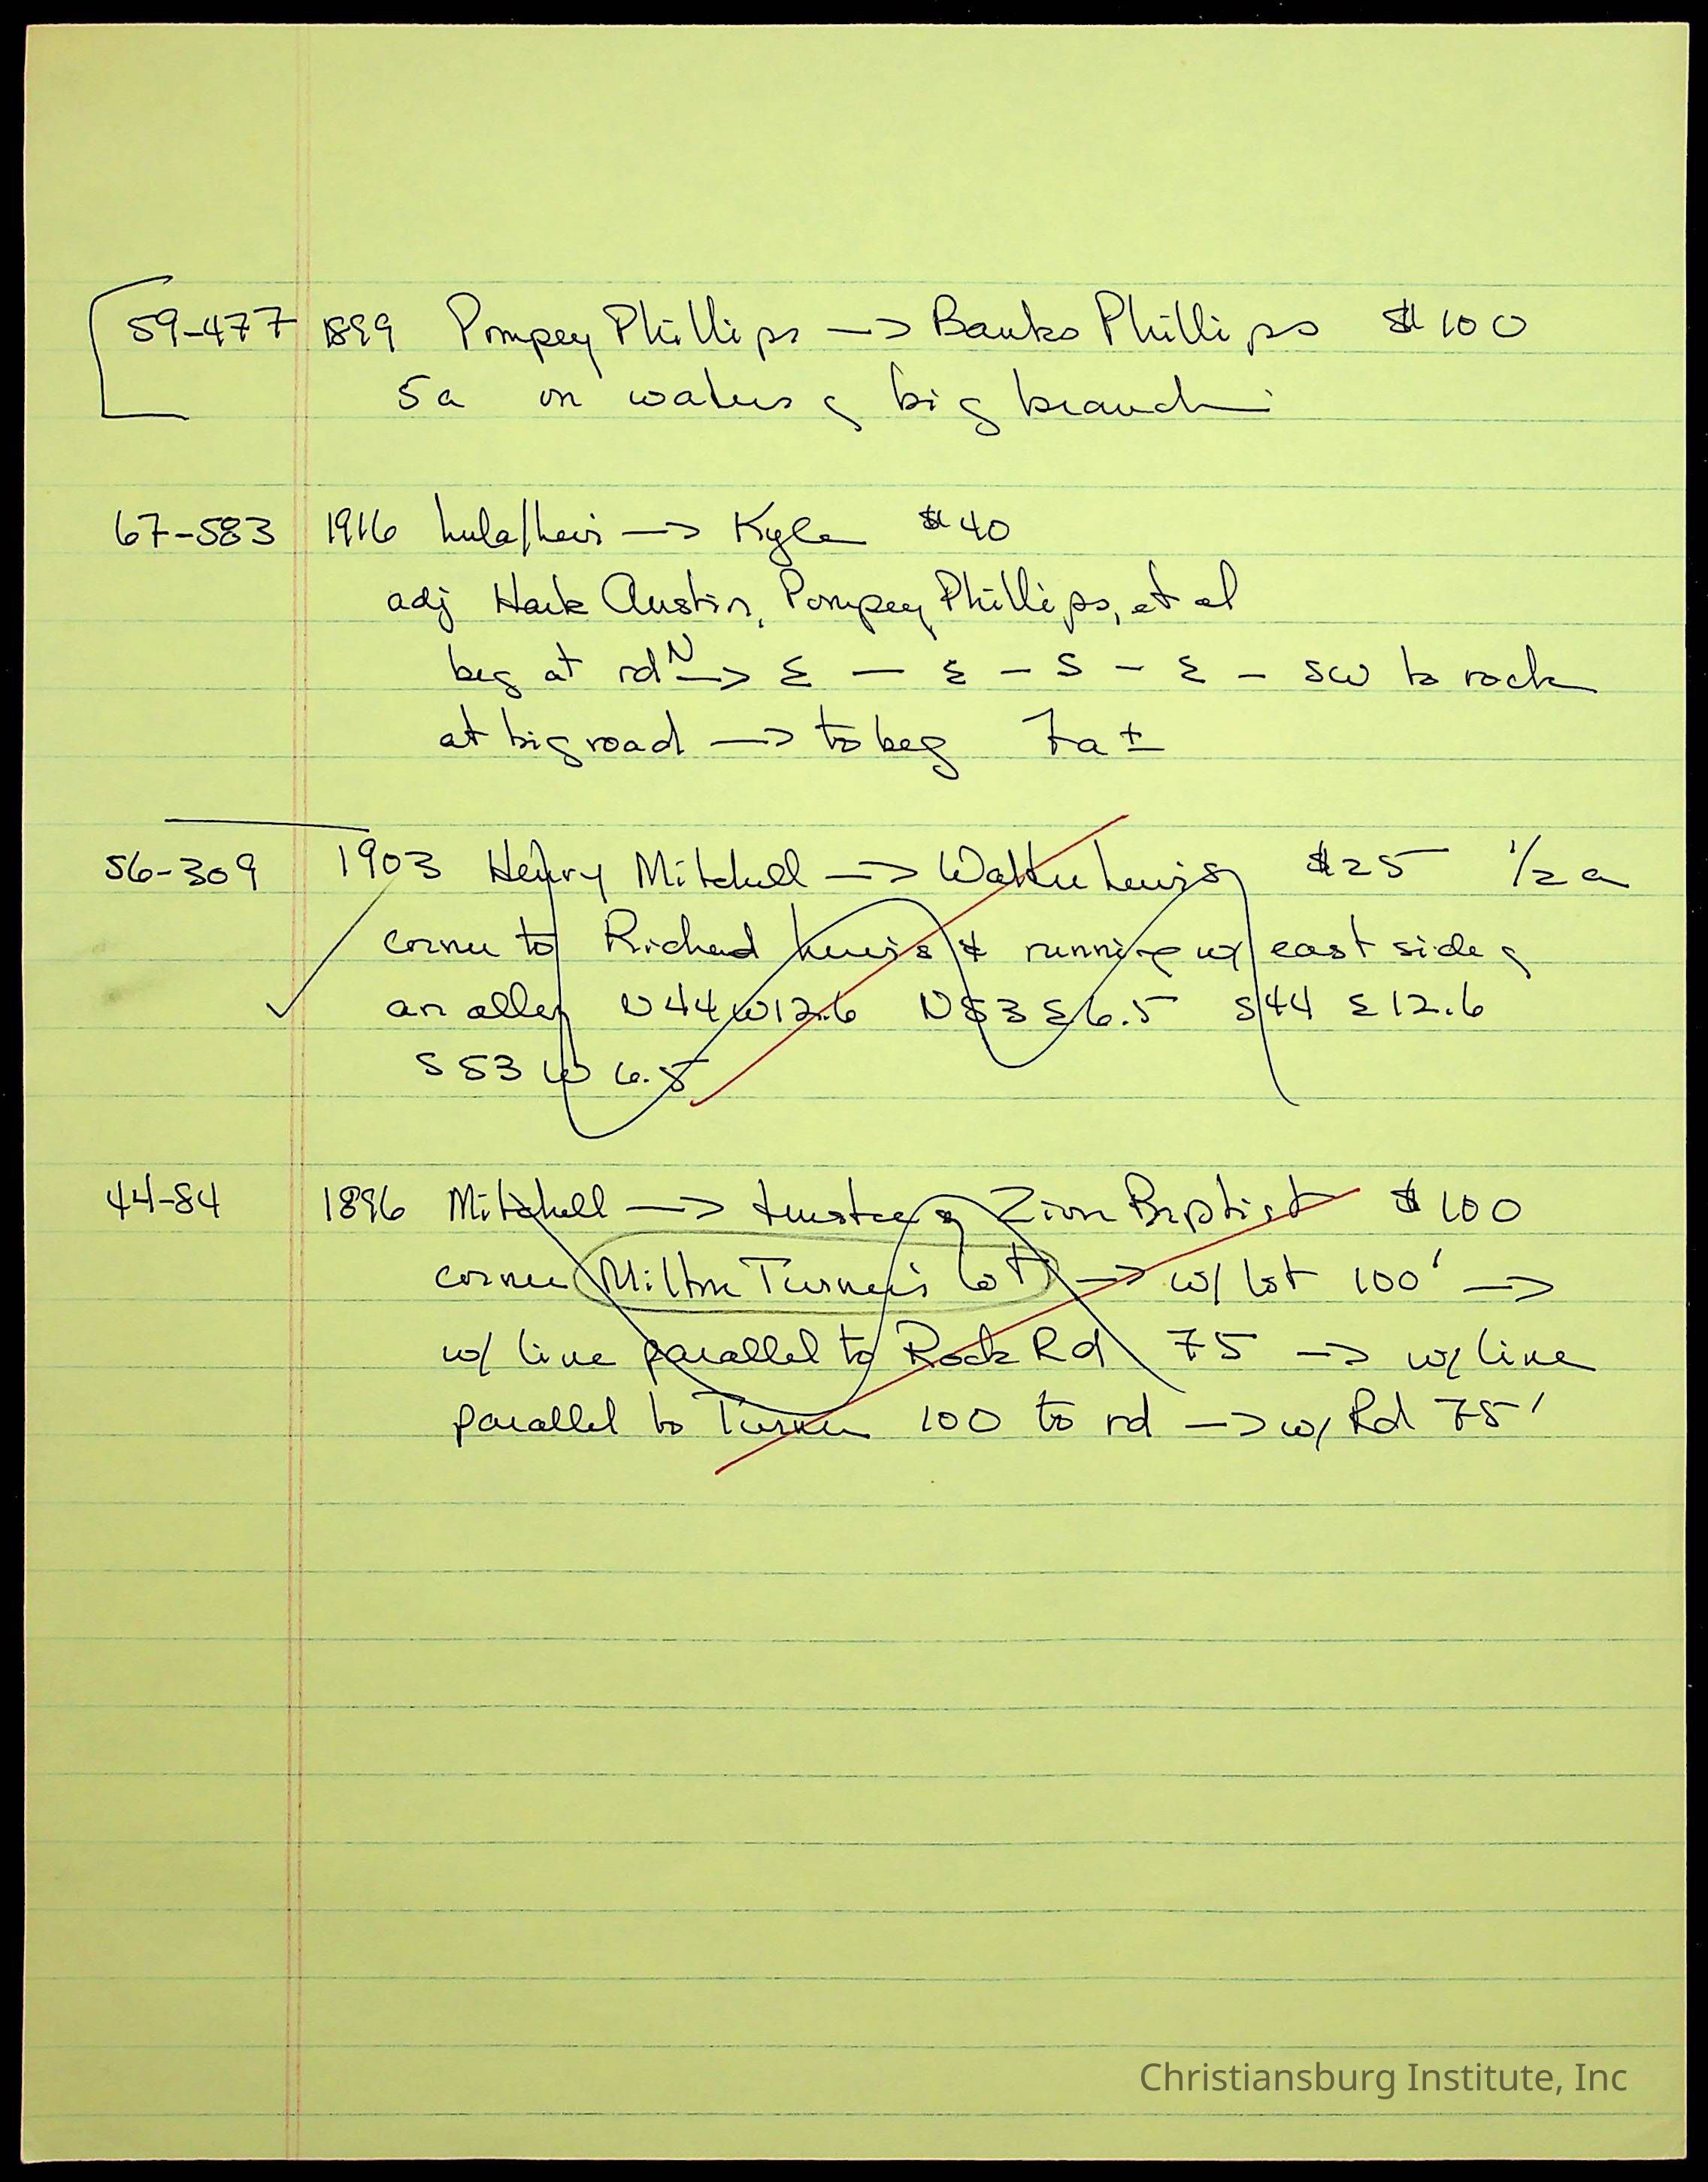 59-477 1899 Pompey Phillips —> Banks Phillips $100
5a on waters of big branch
67-583 1916 Lula/Levi —> Kyle $40
adj Hack Austin, Pompey Phillips, et al
beg at rd N —> E — E — S — E — SW to rock
at big road —> to beg 7a ±
56-309 1903 Henry Mitchell —> Walter Lewis $25 1/2 a
corner to Richard Lewis & running w/ east side of
an alley N44W12.6 N53E6.5 S44E12.6
S53W6.5
44-84 1896 Mitchell —> trustees of Zion Baptist $100
corner Milton Turner's lot —> w/ lot 100' —>
w/ line parallel to Rock Rd 75 —> w/ line
parallel to Turner 100 to rd —> w/ Rd 75'
Christiansburg Institute, Inc